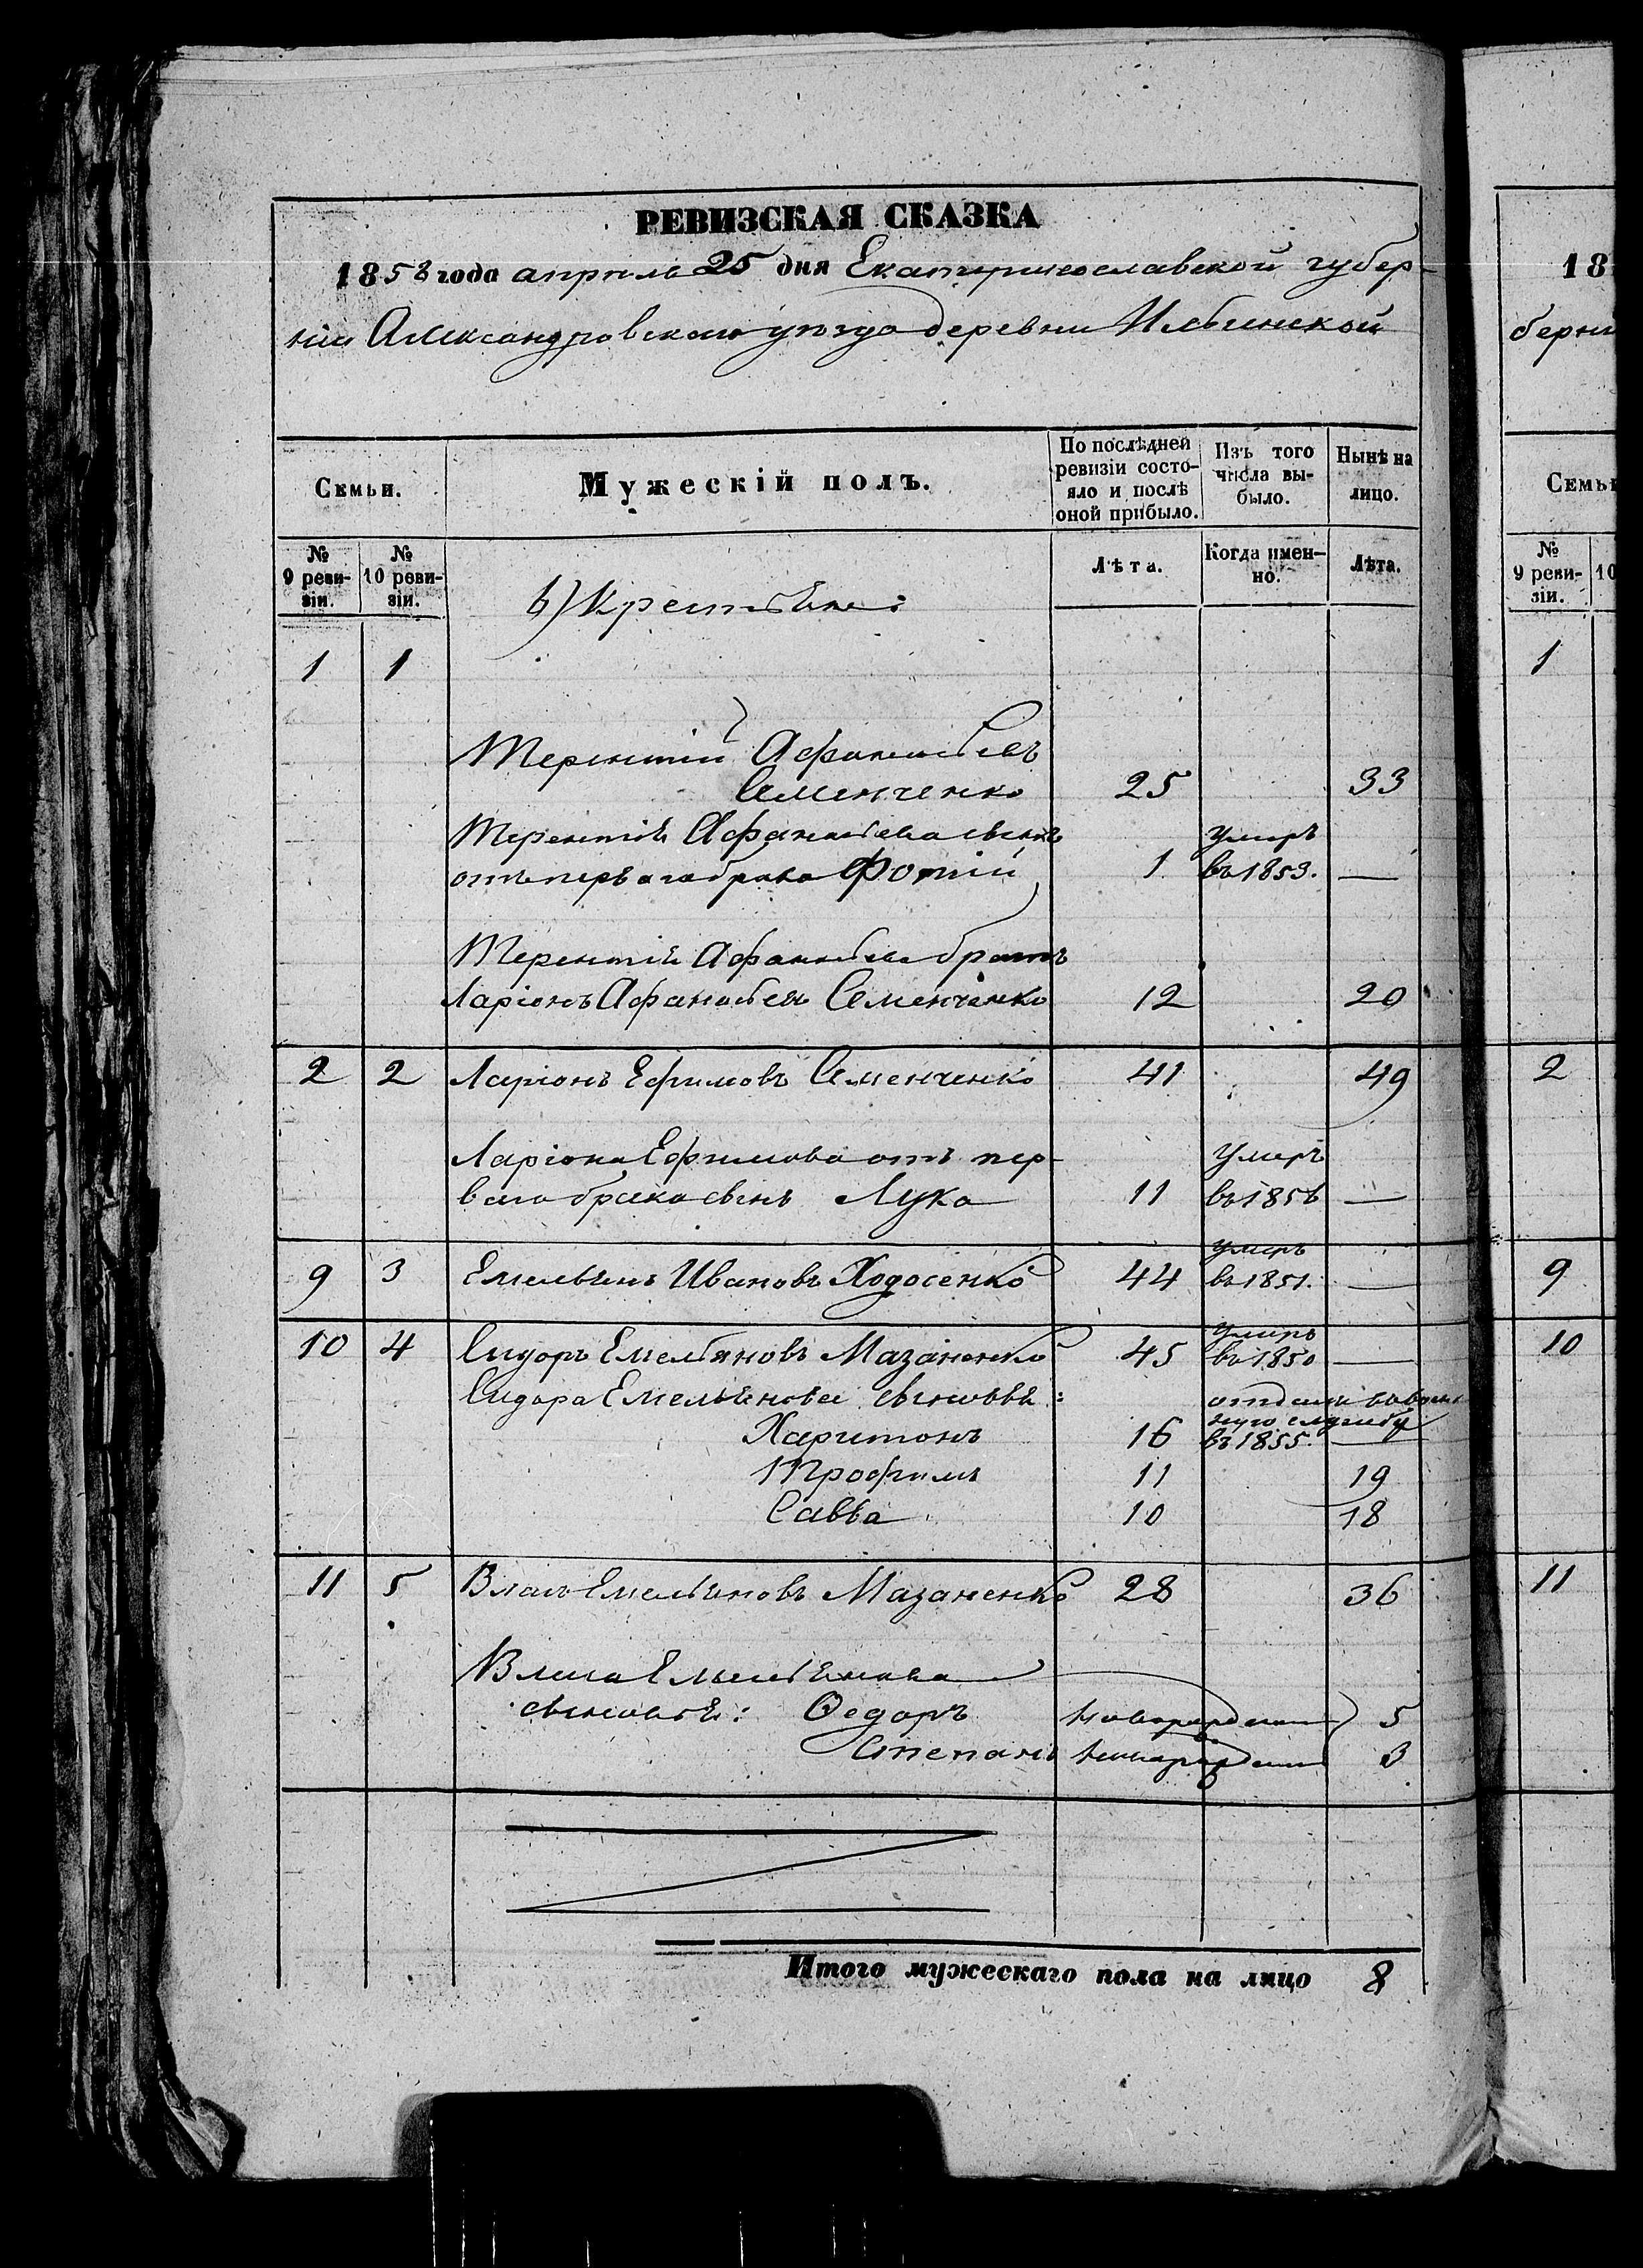 РЕВИЗСКАЯ СКАЗКА
1858 года апрѣля 25 дня Екатеринославской губер-
ніи Александровскаго уѣзда деревни Ильинской
Семьи.
Мужескій полъ.
По послѣдней ревизіи состо-яло и послѣ оной прибыло.
Изъ того числа вы-было.
Нынѣ на лицо.
№ 9 реви-зіи.
№ 10 реви-зіи.
Лѣта.
Когда имен-но.
Лѣта.
в) Крестьяне:
1 1
Терентій Афанасьевъ
Семенченко 25 33
Терентія Афанасьева сынъ умеръ
отъ перваго брака Фотій 1 въ 1853. —
Терентія Афанасьева братъ
Ларіонъ Афанасьевъ Семенченко 12 20
2 2 Ларіонъ Ефимовъ Семенченко 41 49
Ларіона Ефимова отъ пер- Умеръ
ваго брака сынъ Лука 11 въ 1856 —
умеръ
9 3 Емельянъ Ивановъ Ходосенко 44 въ 1851. —
умеръ
10 4 Сидоръ Емельяновъ Мазаненко 45 въ 1850 —
Сидора Емельянова сыновья: отданъ въ воен
ную службу
Харитонъ 16 въ 1855. —
Трофимъ 11 19
Савва 10 18
11 5 Власъ Емельяновъ Мазаненко 28 36
Власа Емельянова
сыновья: Федоръ новорожденъ 5
Степанъ новорожденъ 3
Итого мужескаго пола на лицо 8
18
берні
Семьи
№ 9 реви-зіи.
10
1
2
9
10
11